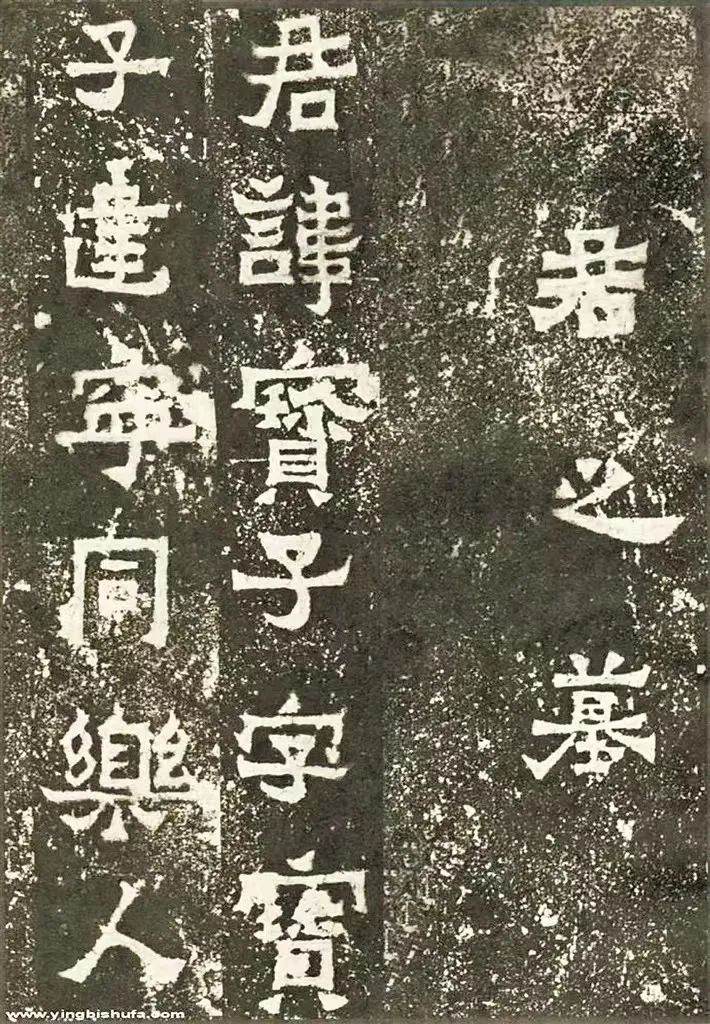 君之墓
君諱寶子字寶
子建寧同樂人
www.yingbishufa.com